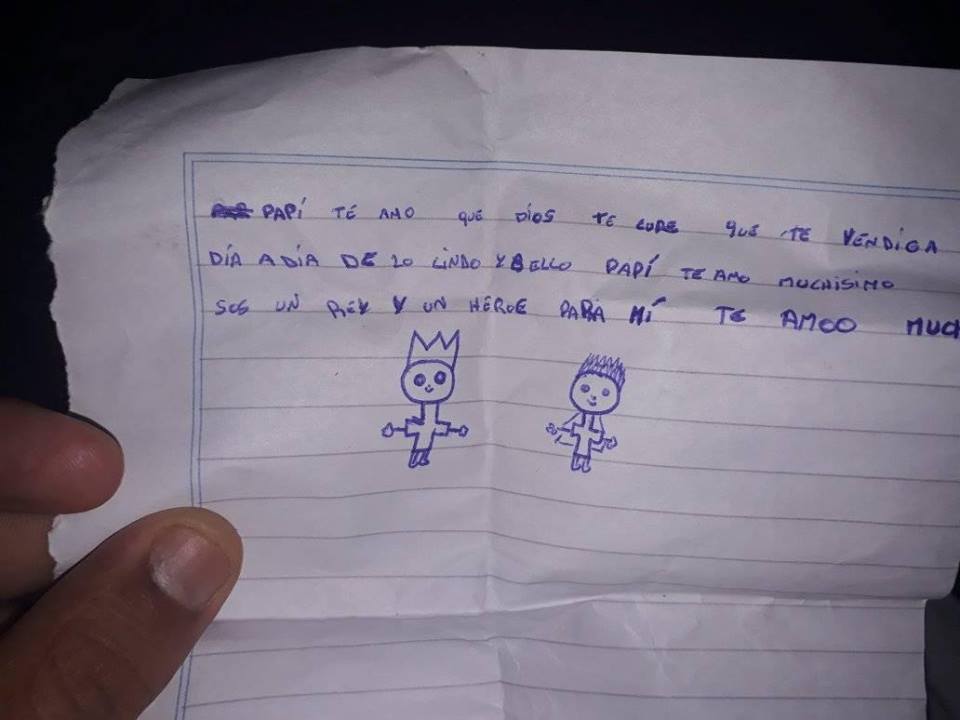 PAPÍ TE AMO QUE DÍOS TE CURE QUE TE VENDIGA
DÍA A DÍA DE LO LINDO Y BELLO PAPÍ TE AMO MUCHISIMO
SOS UN REY Y UN HÉROE PARA MÍ TE AMOO MUCH